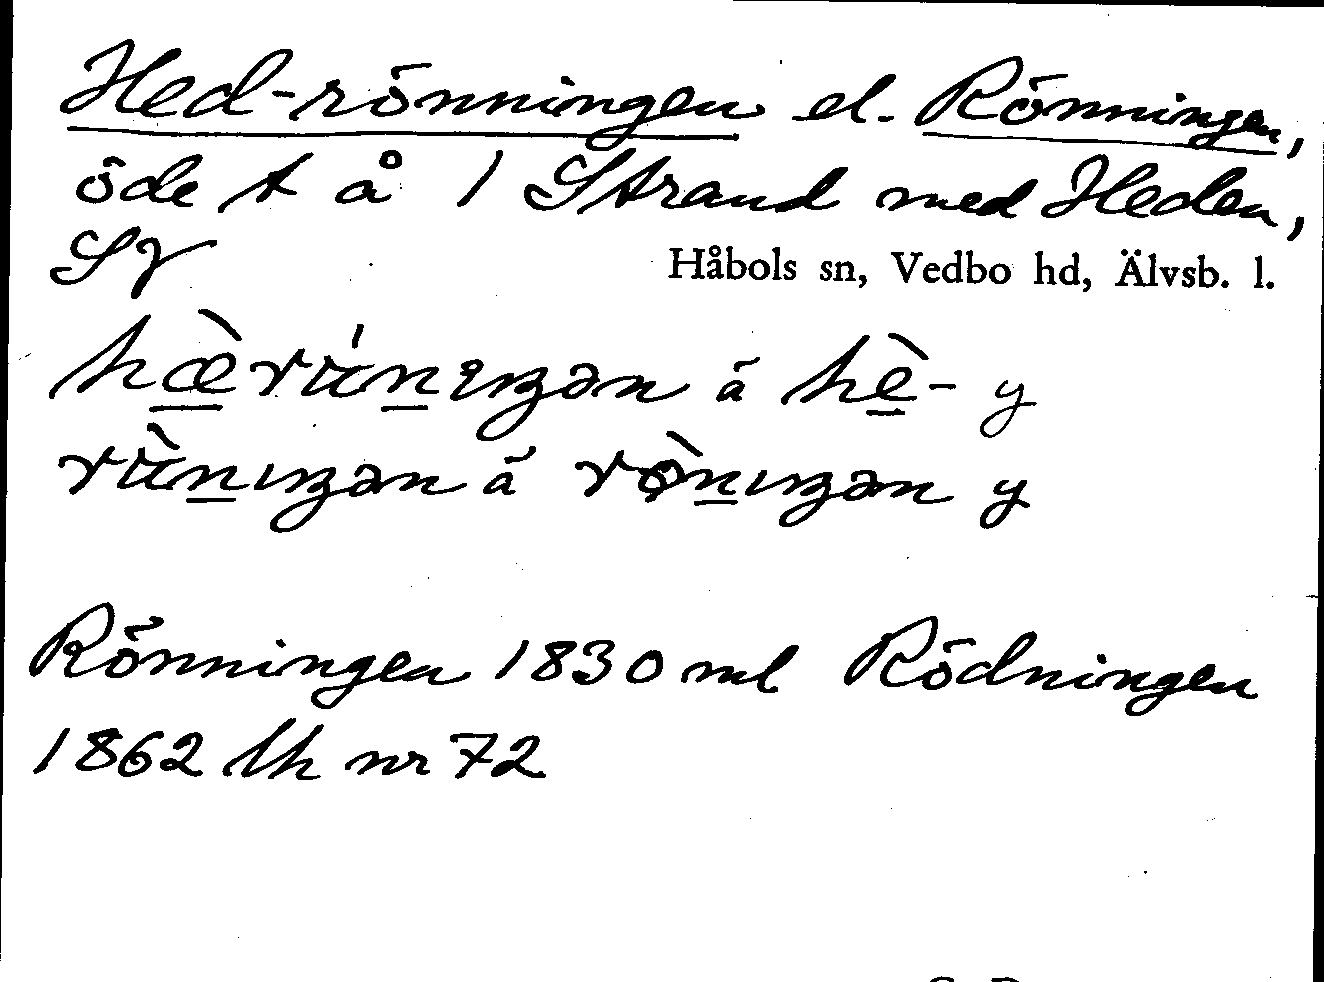 Hed-rönningen el. Rönningen,
öde t å 1 Strand med Heden,
SV
Håbols sn, Vedbo hd, Älvsb. l.
hæ̀rǘnıŋən ă hè- y
rǜnıŋən ă rø̀nıŋən y
Rönningen 1830 ml Rödningen
1862 lh nr 72